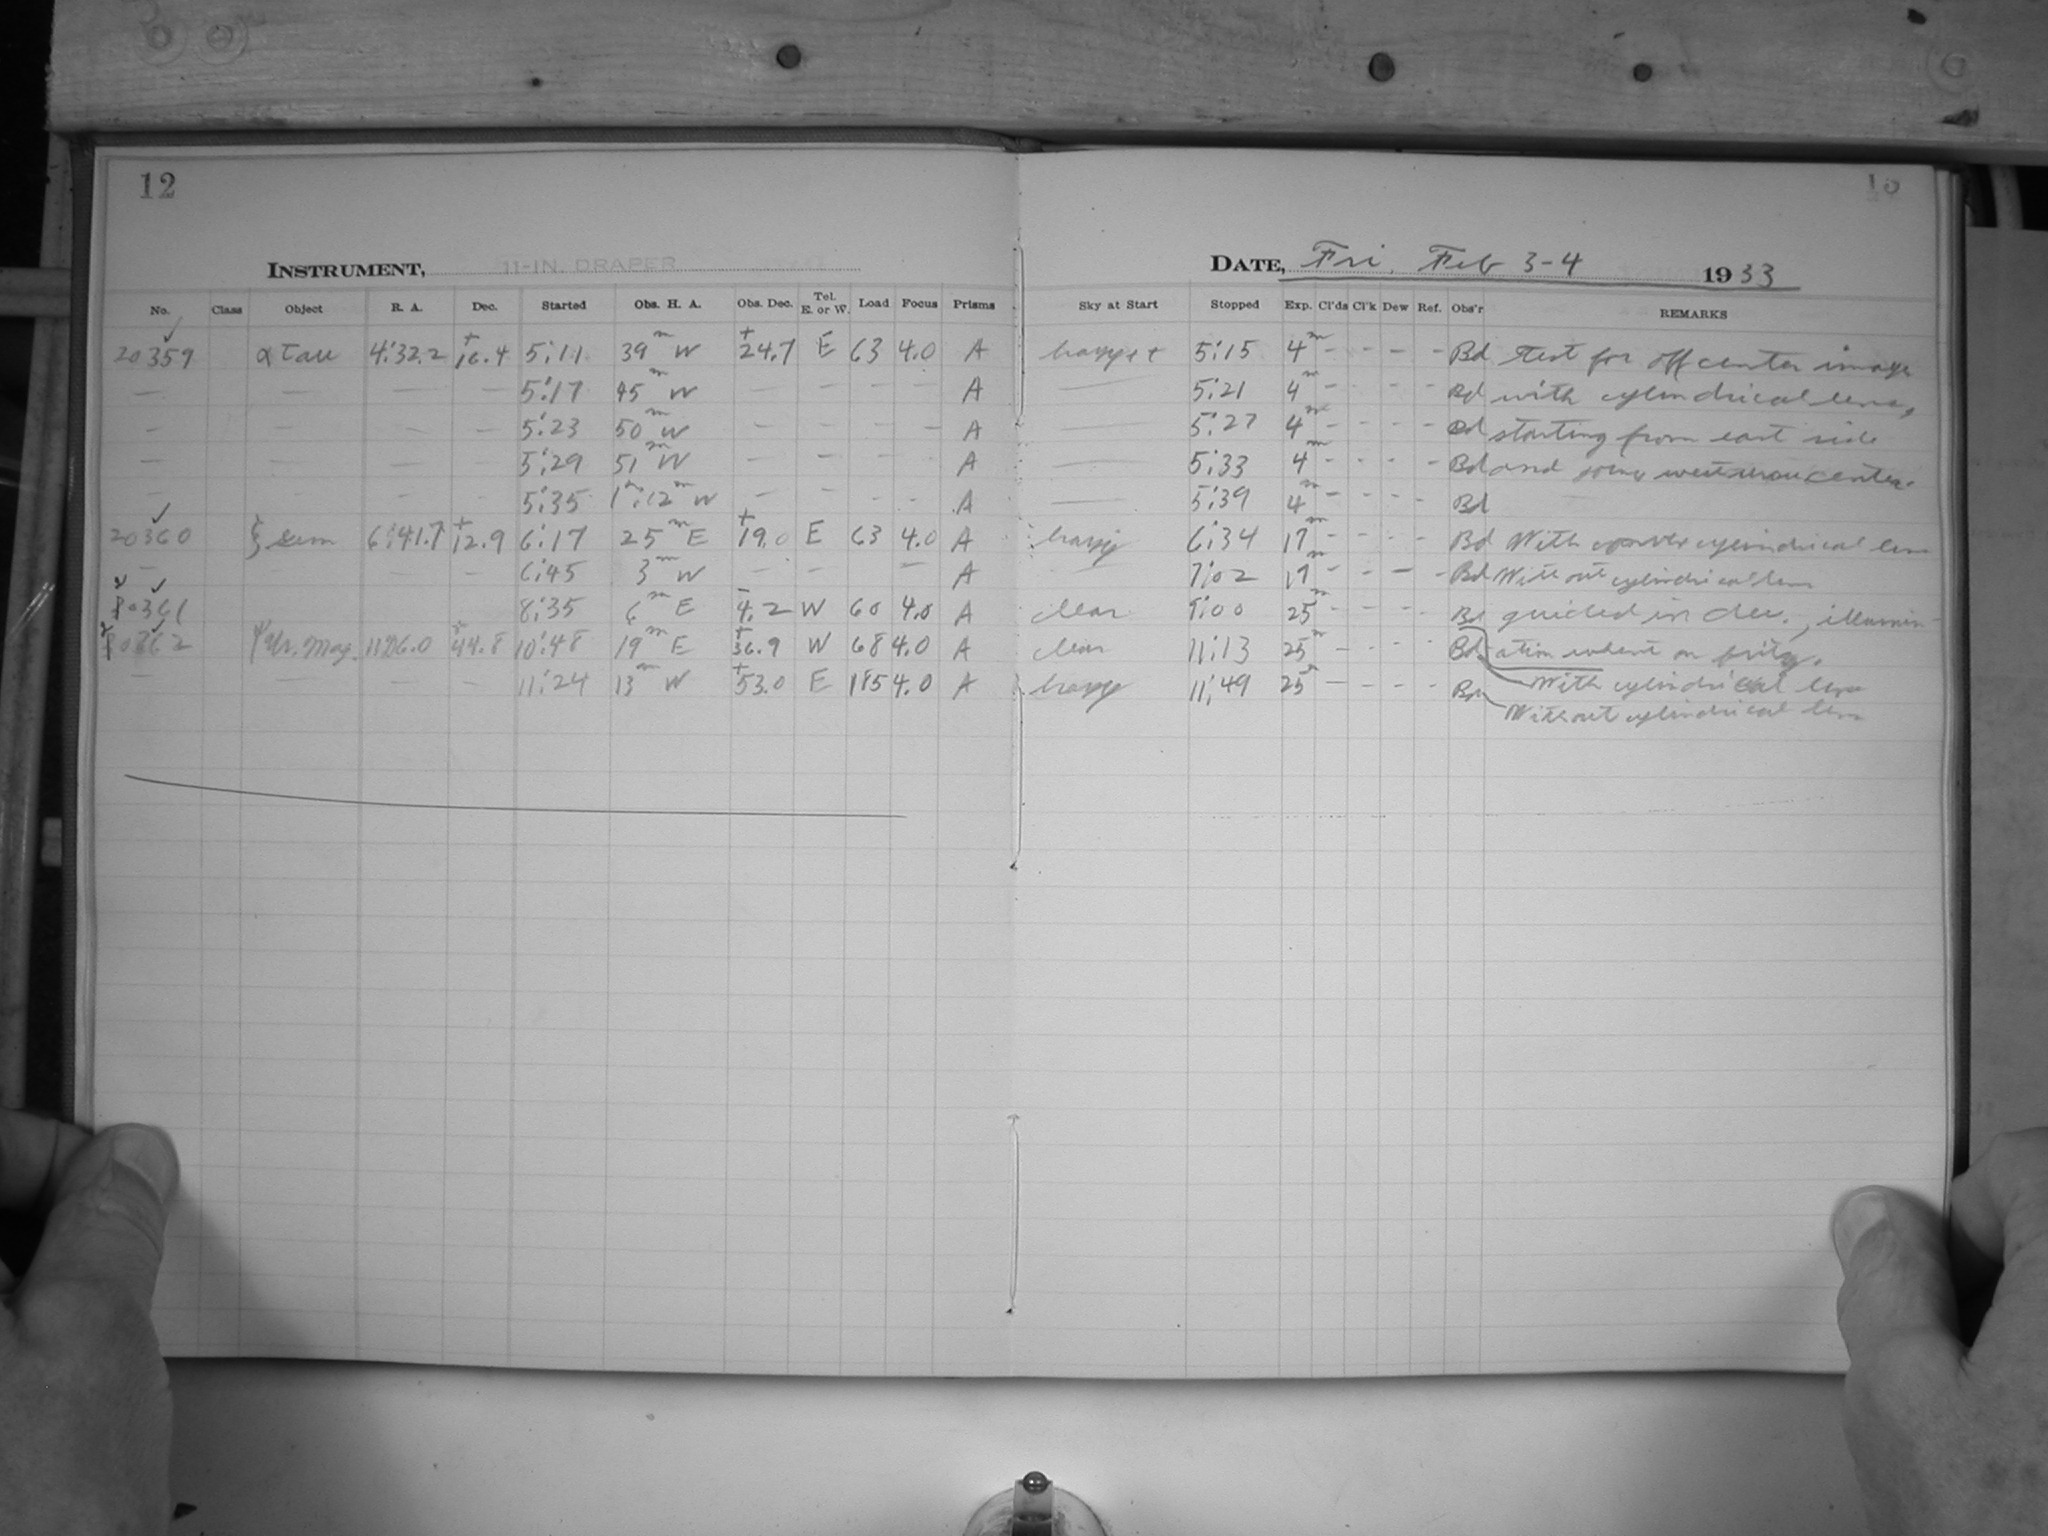 12
INSTRUMENT, 11-IN. DRAPER
DATE, Fri. Feb 3-4 1933
No. Class Object R. A. Dec. Started Obs. H. A. Obs. Dec. Tel. E. or W. Load Focus Prisms Sky at Start Stopped Exp. Cl'ds Cl'k Dew Ref. Obs'r REMARKS
20359 α Tau 4:32.2 +16.4 5:11 39m W +24.7 E 63 4.0 A 5:15 4m - - - - Bd Test for off center image
— — — 5:17 45m W — — — — A — 5:21 4m - - - - Bd with cylindrical lens,
— — — 5:23 50m W — — — — A — 5:27 4m - - - - Bd starting from east side
— — — 5:29 51m W — — — — A — 5:33 4m - - - - Bd and going west center.
— — — 5:35 1h:12m W — — — — A — 5:39 4m - - - - Bd
20360 ξ 6:41.7 +12.9 6:17 25m E +19.0 E 63 4.0 A hazy 6:34 17m - - - - Bd With cylindrical lens
— — — 6:45 3m W — — — — A 7:02 17m - - - - Bd Without cylindrical lens
20361 8:35 6m E -4.2 W 60 4.0 A clear 9:00 25m - - - - Bd guided in dec., illumin-
20362 ψ Ur. Maj. +44.8 10:48 19m E +36.9 W 68 4.0 A clear 11:13 25m - - - Bd ation went on
— — — 11:24 13m W +53.0 E 185 4.0 A hazy 11:49 25m - - - - With cylindrical lens
Without cylindrical lens